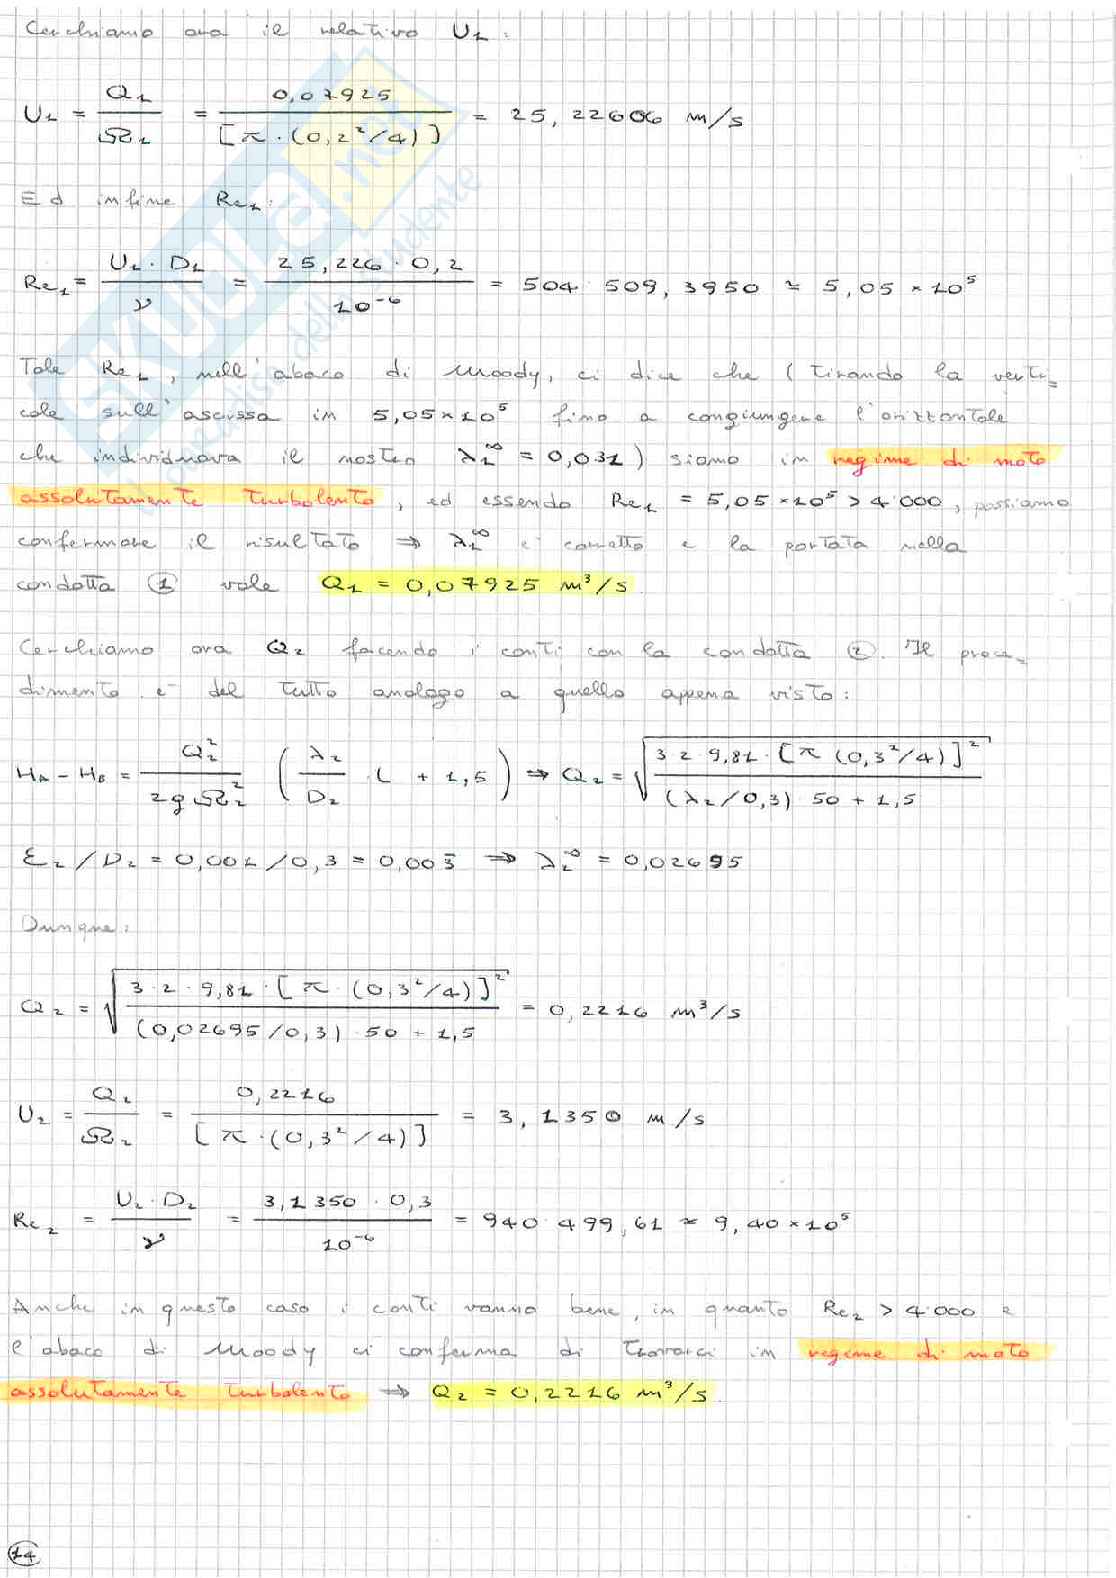 Cerchiamo ora il relativo U₁:
U₁ = Q₁/Ω₁ = 0,07925/[π·(0,2²/4)] = 25,22606 m/s
Ed infine Re₁:
Re₁ = U₁·D₁/ν = 25,226·0,2/10⁻⁶ = 504·509,3950 ≃ 5,05×10⁵
Tale Re₁, nell'abaco di Moody, ci dice che (tirando la verti=
cale sull'ascissa in 5,05×10⁵ fino a congiungere l'orizzontale
che individuava il nostro λ₁^∞ = 0,031) siamo in regime di moto
assolutamente turbolento, ed essendo Re₁ = 5,05×10⁵ > 4·000, possiamo
confermare il risultato ⇒ λ₁^∞ è corretto e la portata nella
condotta ① vale Q₁ = 0,07925 m³/s.
Cerchiamo ora Q₂ facendo i conti con la condotta ②. Il proce=
dimento è del tutto analogo a quello appena visto:
H_A - H_B = Q₂²/2gΩ₂² (λ₂/D₂ · L + 1,5) ⇒ Q₂ = √(3·2·9,81·[π(0,3²/4)]²/(λ₂/0,3)·50 + 1,5)
ε₂/D₂ = 0,001/0,3 = 0,003̄ ⇒ λ₂^∞ = 0,02695
Dunque:
Q₂ = √(3·2·9,81·[π·(0,3²/4)]²/(0,02695/0,3)·50 + 1,5) = 0,2216 m³/s
U₂ = Q₂/Ω₂ = 0,2216/[π·(0,3²/4)] = 3,1350 m/s
Re₂ = U₂·D₂/ν = 3,1350·0,3/10⁻⁶ = 940·499,61 ≃ 9,40×10⁵
Anche in questo caso i conti vanno bene, in quanto Re₂ > 4·000 e
l'abaco di Moody ci conferma di trovarci in regime di moto
assolutamente turbolento ⇒ Q₂ = 0,2216 m³/s.
14
SKUOLA.net